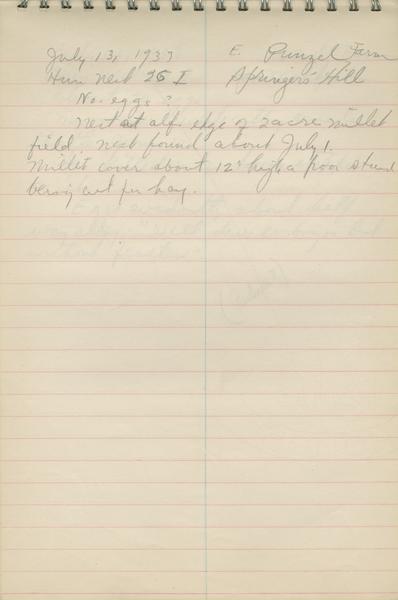 July 13, 1937 E. Punzel Farm
Hun Nest 26 I Springers' Hill
No. eggs ?
Nest at alf. edge of 2 acre millet
field nest found about July 1.
Millet cover about 12" high, a poor stand
being cut for hay.